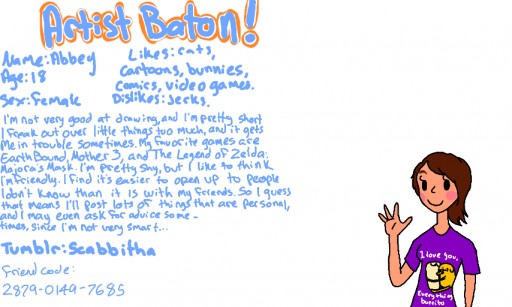 Artist Baton!
Name: Abbey
Age: 18
Sex: Female
Likes: cats,
cartoons, bunnies,
comics, video games.
Dislikes: Jerks.
I'm not very good at drawing, and I'm pretty short
I freak out over little things too much, and it gets
me in trouble sometimes. My favorite games are
EarthBound, Mother 3, and The Legend of Zelda:
Majora's Mask. I'm pretty shy, but I like to think
I'm friendly. I find it's easier to open up to people
I don't know than it is with my friends. So I guess
that means I'll post lots of things that are personal,
and I may even ask for advice some-
times, since I'm not very smart...
Tumblr: Scabbitha
Friend code:
2879-0149-7685
I love you,
Everything
burrito